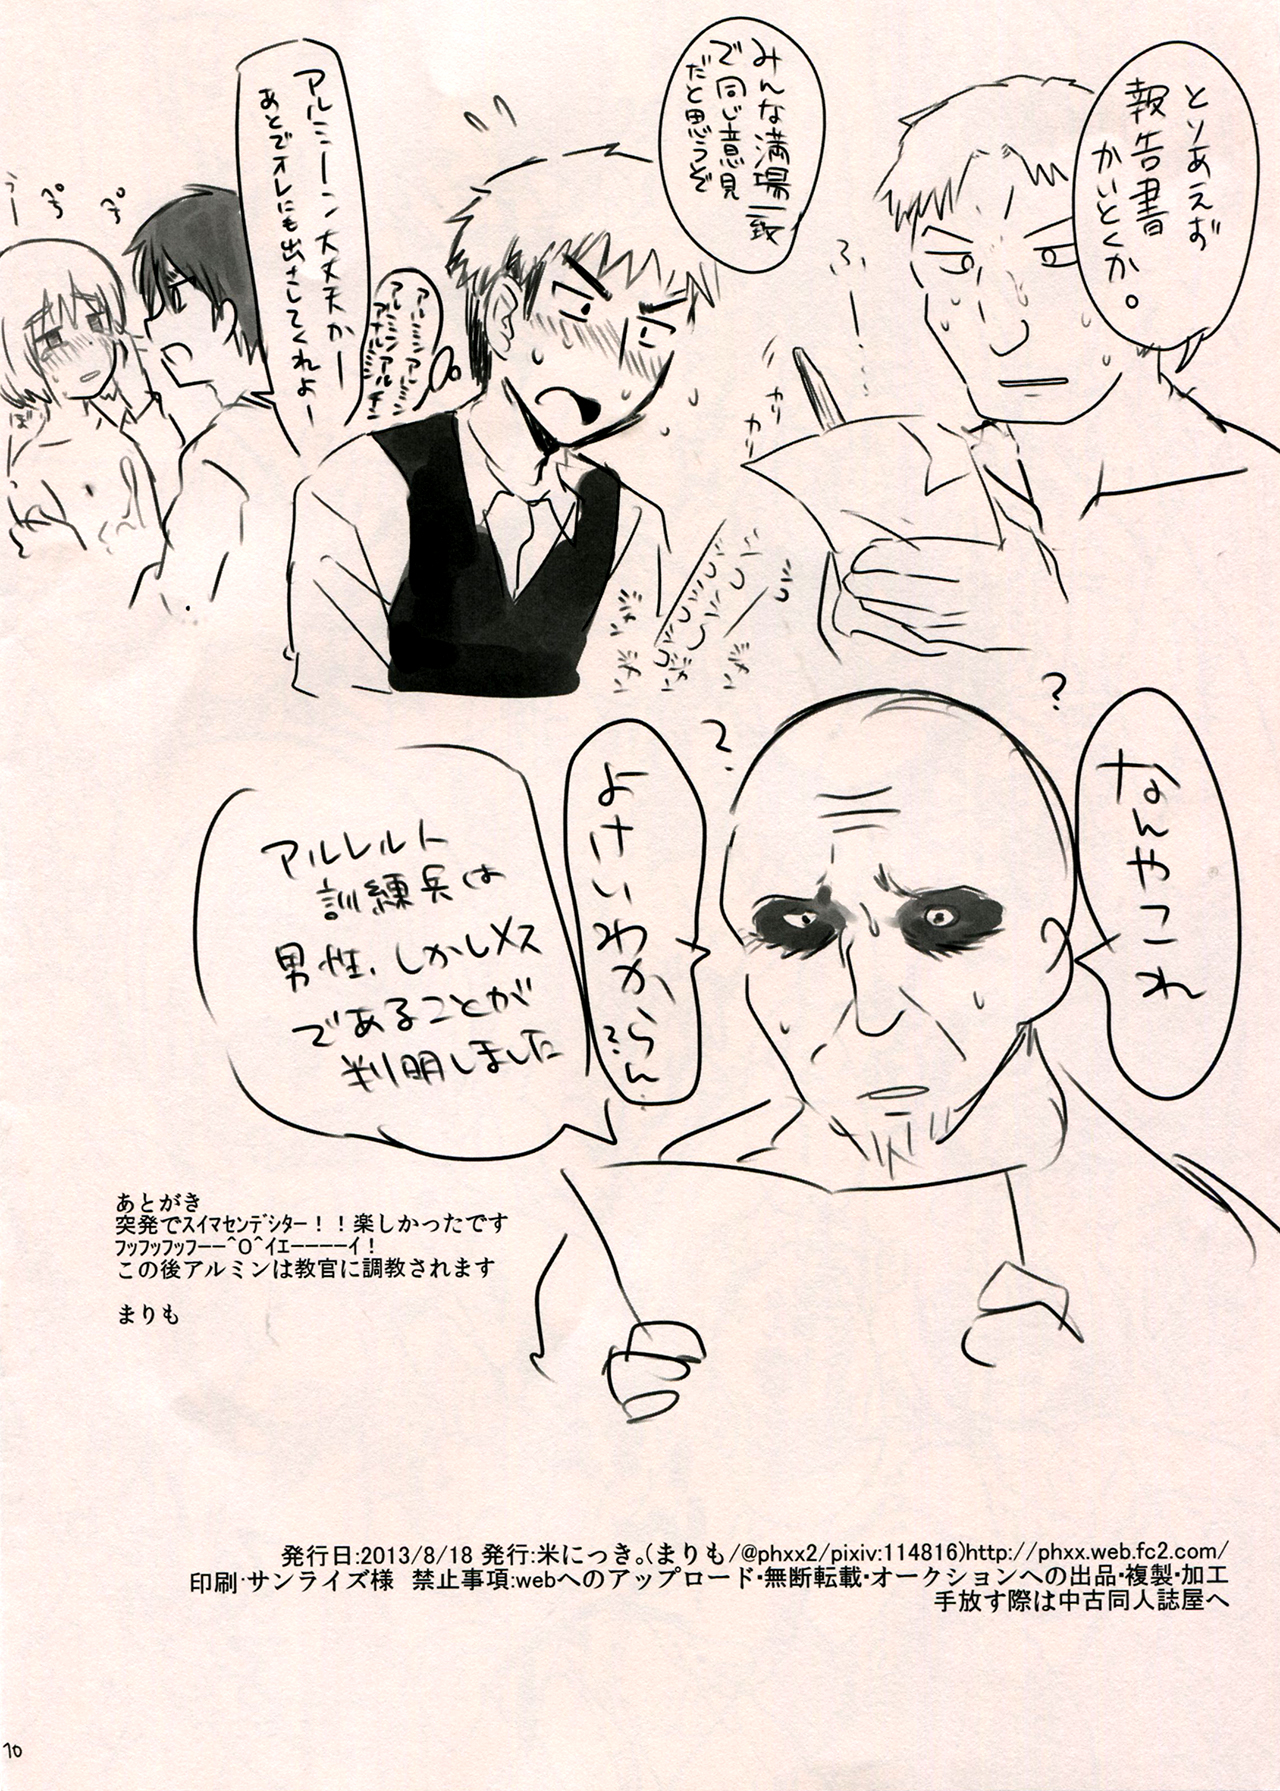 とりあえず
報告書
かいとくか。
みんな満場一致
で同じ意見
だと思うぞ
ふぅ
カリ
カリ
アルミーン大丈夫かー
あとでオレにも出さしてくれよー
ぽ
ぽ
なんやこれ
?
?
よけいわからん
アルレルト
訓練兵は
男性、しかしメス
であることが
判明しました
あとがき
突発でｽｲﾏｾﾝﾃﾞｼﾀｰ！！楽しかったです
ﾌｯﾌｯﾌｯﾌｰー^O^ｲｴーーーーｲ！
この後アルミンは教官に調教されます
まりも
発行日:2013/8/18 発行:米にっき。(まりも/@phxx2/pixiv:114816)http://phxx.web.fc2.com/
印刷・サンライズ様 禁止事項:webへのアップロード・無断転載・オークションへの出品・複製・加工
手放す際は中古同人誌屋へ
10